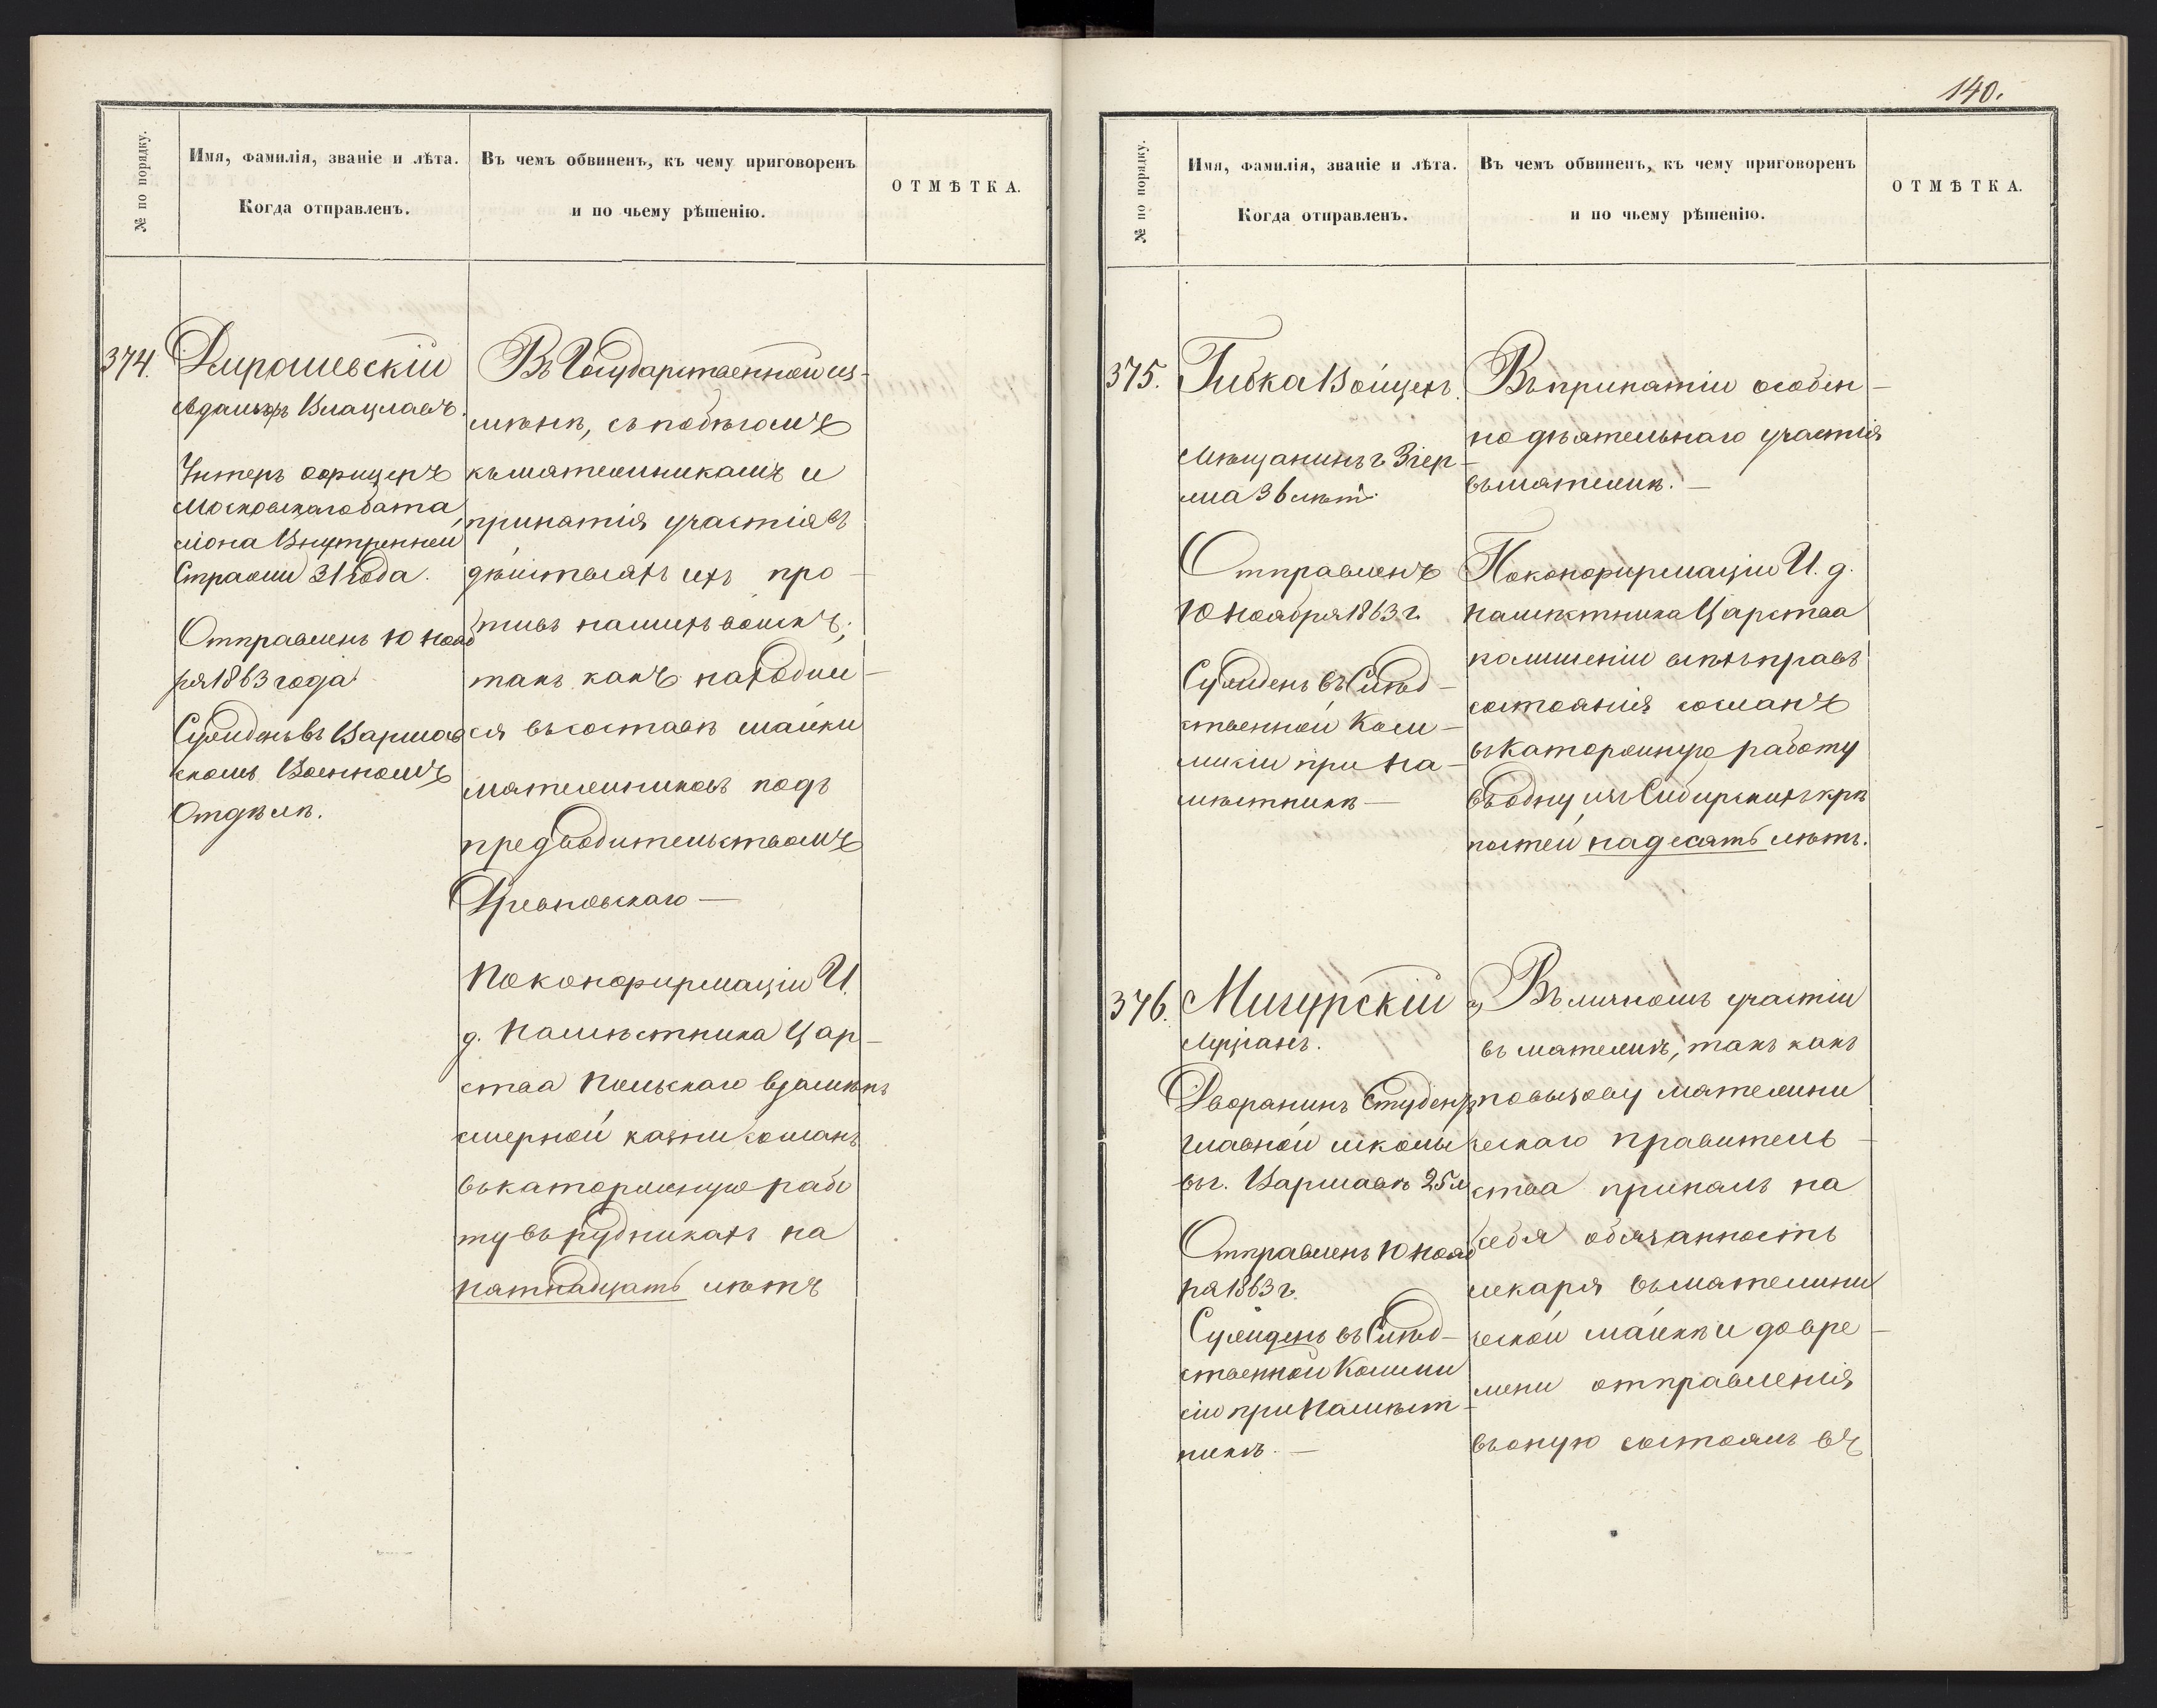 140.
№ по порядку.
Имя, фамилія, званіе и лѣта.
Когда отправленъ.
Въ чемъ обвиненъ, къ чему приговоренъ
и по чьему рѣшенію.
ОТМѢТКА.
374.
Дирошевскій
Вацлавъ.
Унтеръ офицеръ
Московскаго бата
ліона Внутренней
Стражи 31 года.
Отправленъ 10 нояб
ря 1863 года
Сужденъ въ Варшав
скомъ Военномъ
Отдѣлѣ.
Въ Государственной из-
мѣнѣ, съ побѣгомъ
къ мятежникамъ и
принятія участія въ
дѣйствіяхъ ихъ про-
тивъ нашихъ войскъ,
такъ какъ находил-
ся въ составѣ шайки
мятежниковъ подъ
предводительствомъ
По конфирмаціи И.
д. Намѣстника Цар-
ства Польскаго взамѣнъ
смерной казни сосланъ
въ каторжную рабо
ту въ рудникахъ на
пятнадцать лѣтъ
№ по порядку.
Имя, фамилія, званіе и лѣта.
Когда отправленъ.
Въ чемъ обвиненъ, къ чему приговоренъ
и по чьему рѣшенію.
ОТМѢТКА.
375.
Гибка Войцехъ.
Мѣщанинъ г. Згер-
жа 36 лѣтъ.
Отправленъ
10 Ноября 1863 г.
Сужденъ въ Слѣд-
ственной Ком-
мисіи при На-
мѣстникѣ —
Въ принятіи особен-
но дѣятельнаго участія
въ мятежѣ. —
По конфирмаціи И. д.
Намѣстника Царства
по лишеніи всѣхъ правъ
состоянія сосланъ
въ каторжную работу
въ одну изъ Сибирскихъ крѣ
постей на десять лѣтъ.
376.
Мигурскій
Луціанъ.
Дворянинъ Студентъ
главной школы
въ г. Варшавѣ 25 л
Отправленъ 10 нояб
ря 1863 г.
Сужденъ въ Слѣд-
ственной Комми
сіи при Намѣст-
никѣ. —
а) Въ личномъ участіи
въ мятежѣ, такъ какъ
по вызову мятежни
ческаго правитель-
ства принялъ на
себя обязанность
лекаря въ мятежни
ческой шайкѣ и до вре-
мени отправленія
въ оную состоялъ въ